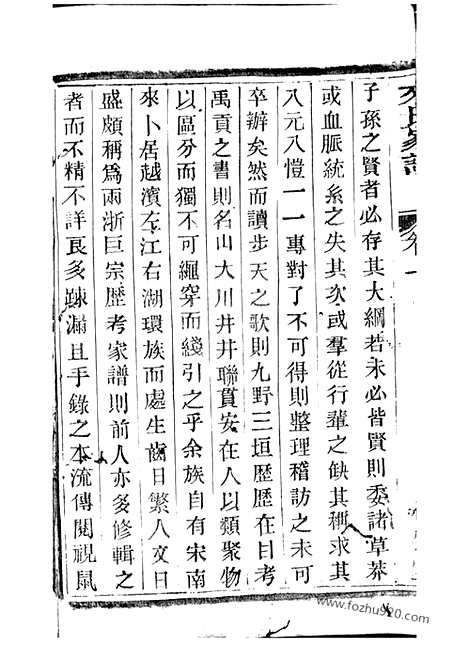 子孫之賢者必存其大綱若未必皆賢則委諸草莽
或血脈統系之失其次或羣從行輩之缺其稱求其
八元八愷一一專對了不可得則整理稽訪之未可
卒辦矣然而讀步天之歌則九野三垣歷歷在目考
禹貢之書則名山大川井井聯貫安在人以類聚物
以區分而獨不可繩穿而綫引之乎余族自有宋南
來卜居越濱左江右湖環族而處生齒日繁人文日
盛頗稱爲兩浙巨宗歷考家譜則前人亦多修輯之
者而不精不詳良多踈漏且手錄之本流傳閱視鼠
www.fozhu920.com